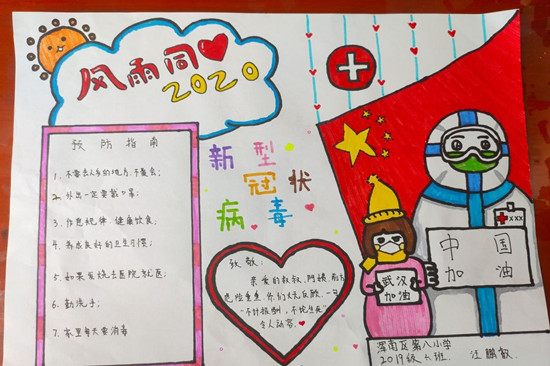 风雨同
2020
预防指南
1、不要去人多的地方,不聚会;
2、外出一定要戴口罩;
3、作息规律、健康饮食;
4、养成良好的卫生习惯;
5、如果发烧去医院就医;
6、勤洗手;
7、家里每天要消毒
新型
冠状
病毒
致敬:
亲爱的叔叔、阿姨、前方
危险重重,你们义无反顾,一句
“不计报酬,不论生死”
令人动容。
武汉
加油
xxx
中国
加油
浑南区第八小学
2019级4.班 汪鹏歆